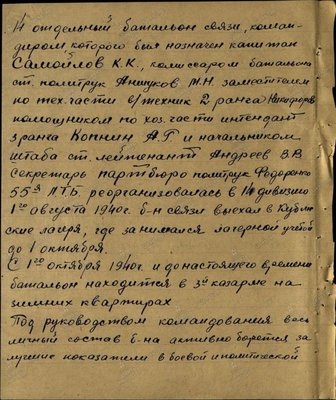 14 отдельный батальон связи, коман-
диром, которого был назначен капитан
Самойлов К.К., комиссаром батальона
ст. политрук Анчуков М.Н. заместителем
по тех. части в/техник 2 ранга Никифоров
помошником по хоз. части интендант
3 ранга Копнин А.Г и начальником
штаба ст. лейтенант Андреев В.В
Секретарь партбюро политрук Федоренко
55ая ЛТБ реорганизовалась в 14 дивизию
1го августа 1940г. б-н связи выехал в
ские лагеря, где занимался лагерной учебой
до 1 октября.
С 1го октября 1940г. и до настоящего времени
батальон находится в 3й казарме на
зимних квартирах
Под руководством командования весь
личный состав б-на активно борется за
лучшие показатели в боевой и политической